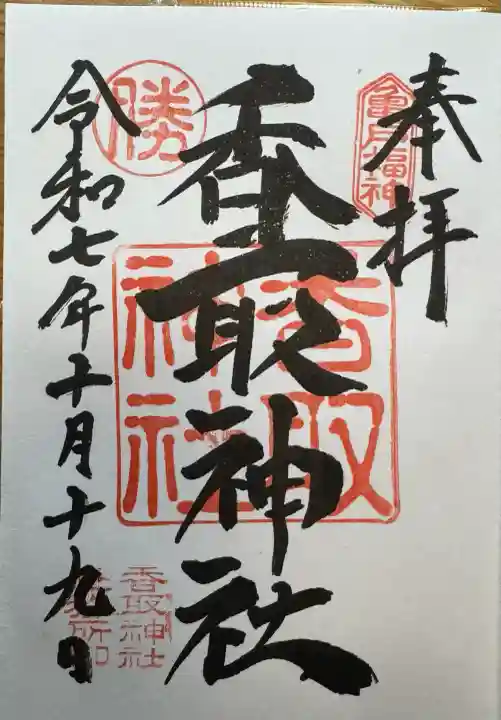 奉拝
亀戸福神
香取神社
香取神社
勝
令和七年十月十九日
香取神社